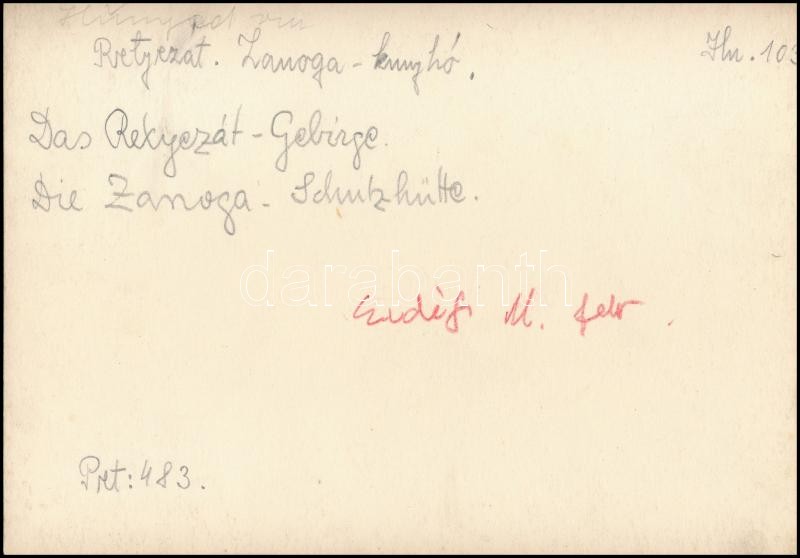 Hunyad vm
Retyezát. Zanoga-kunyhó.
Hu. 103
Das Rekyezát-Gebirge.
Die Zanoga-Schutzhütte.
darabanth
M. felv.
Prt: 483.